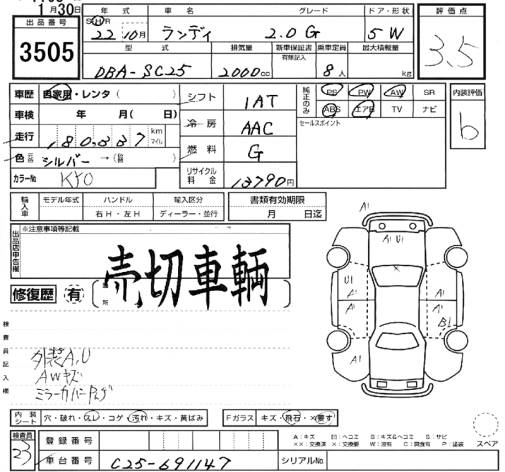 1月30日
出品番号 3505
年式 車名 グレード ドア・形状
22年10月 ランディ 2.0G 5W
型式 排気量 新車保証書 有無記入 乗車定員 最大積載量
DBA-SC25 2000cc 8人 kg
評価点 3.5
車歴 自家用・レンタ( )
車検 年 月( 日)
走行 180,337 km マイル
色 シルバー→( )
カラーNo KY0
シフト 1AT
冷房 AAC
燃料 G
リサイクル料金 13790円
純正のみ PS PW AW SR
ABS エアB TV ナビ
セールスポイント
内装評価 b
輸入車 モデル年式 ハンドル 輸入区分 書類有効期限
右H・左H ディーラー・並行 月 日迄
出品店申告欄 ※注意事項等記載
売切車輌
修復歴 有
検査員記入欄
外装A,U
AWキズ
ミラーカバー
A1
A1 U1
U1 A1
A1
A1
B1
A1
内装シート 穴・破れ・スレ・コゲ・汚れ・キズ・黄ばみ
Fガラス キズ・飛石・×要す
検査員 33
登録番号
車台番号 C25-691147 シリアルNo.
A:キズ U:ヘコミ B:キズ&ヘコミ S:サビ
××:交換済 ×:要交換 W:波 C:腐食 P:塗装
スペア